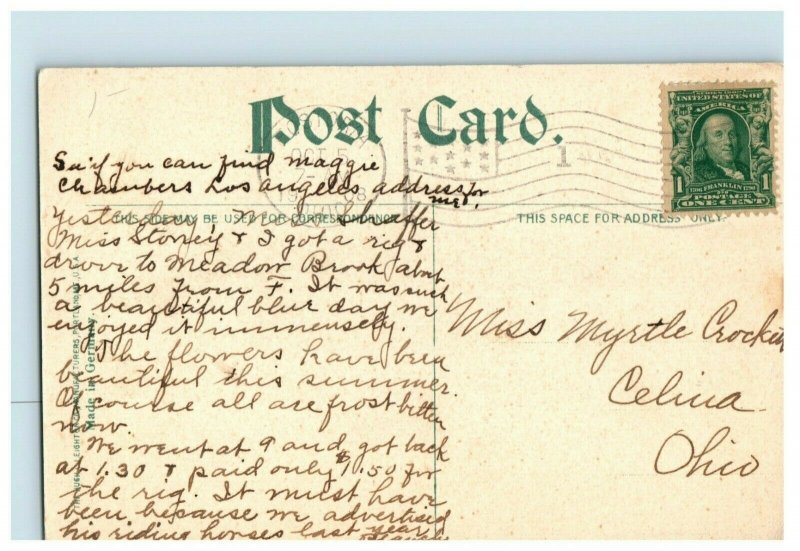 Post Card.
OCT 5
1
SERIES 1902
UNITED STATES OF
AMERICA
FRANKLIN
POSTAGE
1 ONE CENT 1
See if you can find Maggie
Chambers Los Angeles address for
me.
THIS SIDE MAY BE USED FOR CORRESPONDENCE
THIS SPACE FOR ADDRESS ONLY.
Yesterday, Shaffer
Miss Storrey & I got a rig &
drove to Meadow Brook about
5 miles from F. It was such
a beautiful blue day we
enjoyed it immensely.
The flowers have been
beautiful this summer.
Of course all are frost bitten
now.
We went at 9 and got back
at 1.30 & paid only $1.50 for
the rig. It must have
been because we advertised
his riding horses last year
Miss Myrtle Crockett
Celina
Ohio
THE HUGH C. LEIGHTON CO., MANUFACTURERS, PORTLAND, ME., U.S.A.
Made in Germany.